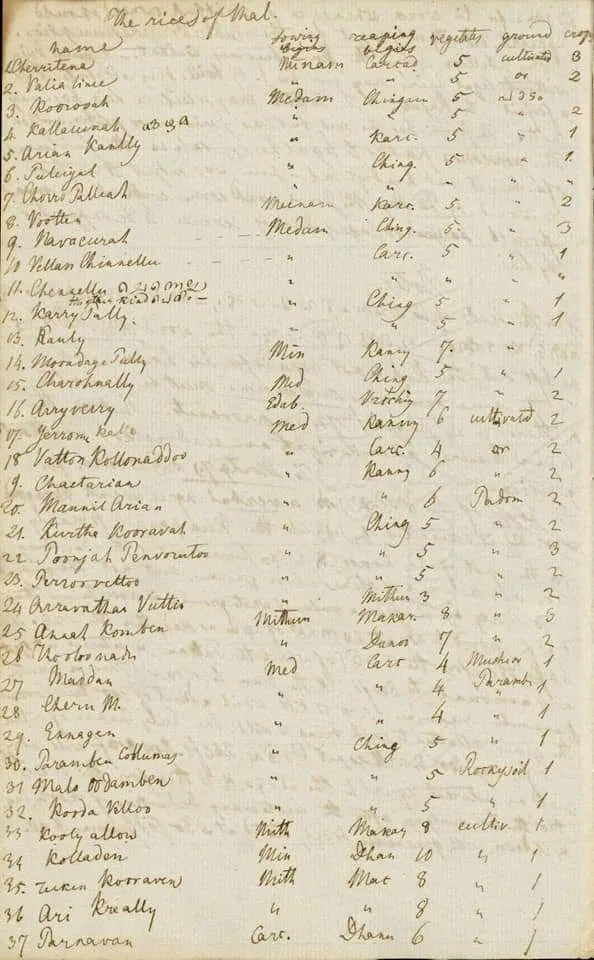 The rices of Mal.
name sowing begins reaping begins vegetates ground crops
1. Cherritena Minam Carcad 5 cultivated 3
2. Valia linee " " 5 or 2
3. Kooroovah Medam Chingam 5
4. Kallacunah " " 5 " 2
5. Arian Kautly " Karc. 5 " 1
6. Puleigal " Ching. 5 " 1
7. Chorro Palleah " " " " "
8. Vootten Meenam Karc. 5 " 2
9. Navacurah Medam Ching. 5. " 3
10 Vellan Chinnellu " Carc. 5 " 1
11. Chennellu " " " " "
12. Karry Tally. " Ching 5 " 1
13. Kauly " " 5 " 1
14. Moondage Tully Min Kanny 7. "
15. Charohnally Med Ching 5 " 1
16. Arryverry Edab. 7 " 2
17. Jerrom Med Kanny 6 cultivated 2
18 Vatton Kollonaddoo " Carc. 4 or 2
19. Chaetarian " Kanny 6 " 2
20. Mannil Arian " " 6 Padom 2
21. Kurtha Kooravah " Ching 5 " 2
22. Poonjah Penvorutoo " " 5 " 3
23. Perroovettoo " " 5 " 2
24 Arravathan Vutten " Mithun 3 " 2
25 Anaah Komben Mithun Makar. 8 " 5
26 " Danos 7 " 2
27 Maddan Med Carc 4 1
28 Cheru M. " " 4 Paramb. 1
29. Ennagen " " 4 " 1
30. Paramben " Ching 5 " 1
31 Malo oodamben " " 5 Rocky soil 1
32. Korda Velloo " " 5 " 1
33 Kooly allow Mith Makay 8 cultiv. 1
34 Kolladen Min Dhan 10 " 1
35. Kooraven Mith Mac 8 " 1
36 Ari Kreally " " 8 " 1
37 Parnavan Carc. Dhanu 6 " 1